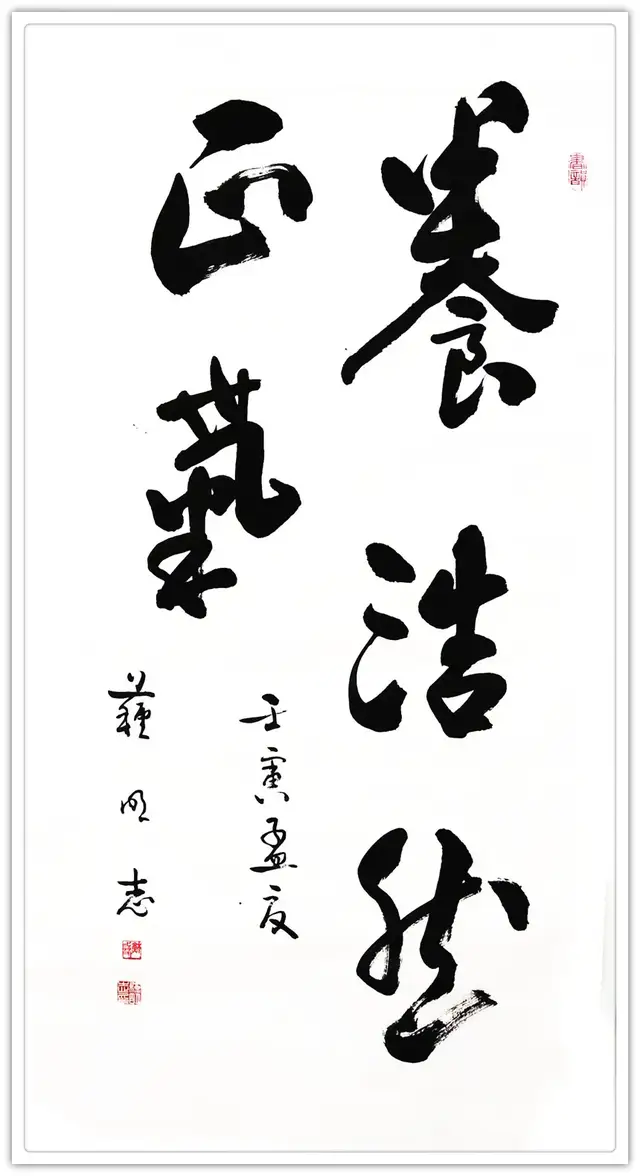 養浩然
正氣
壬寅孟夏
明志